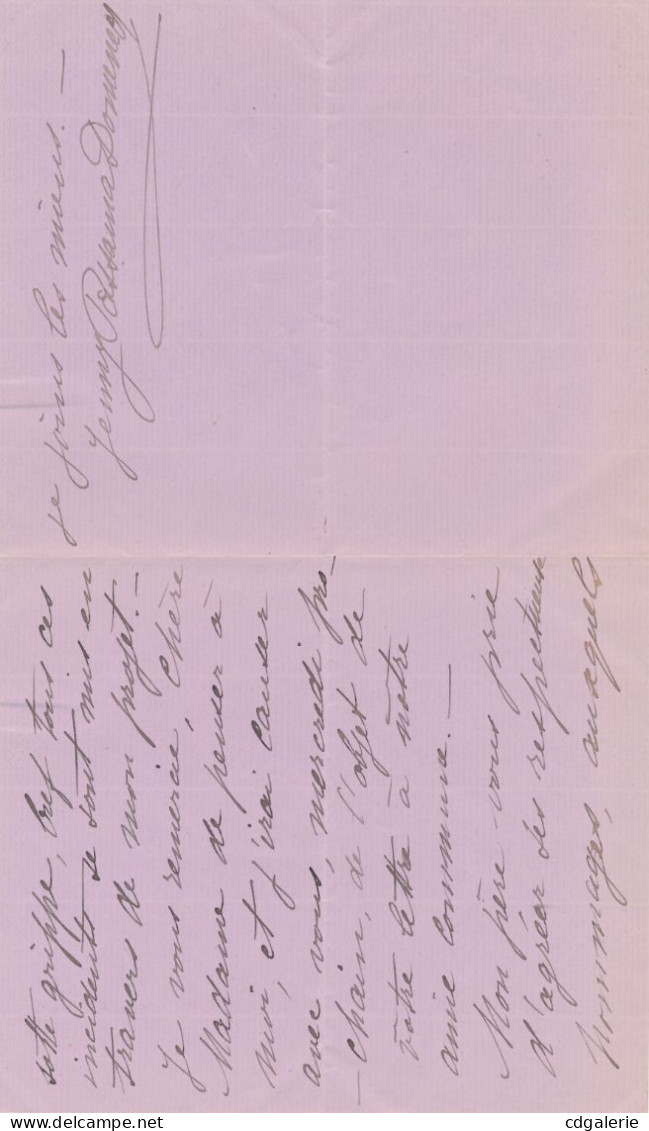 sotte grippe, bref tous ces
incidents se sont mis en
travers de mon projet.—
Je vous remercie, Chère
Madame de penser à
moi, et j'irai causer
avec vous, mercredi pro-
-chain, de l'objet de
vôtre lettre à nôtre
amie commune.—
Mon père vous prie
d'agréer ses respectueux
hommages, auxquels
je joins les miens.—
Jenny
delcampe.net
cdgalerie